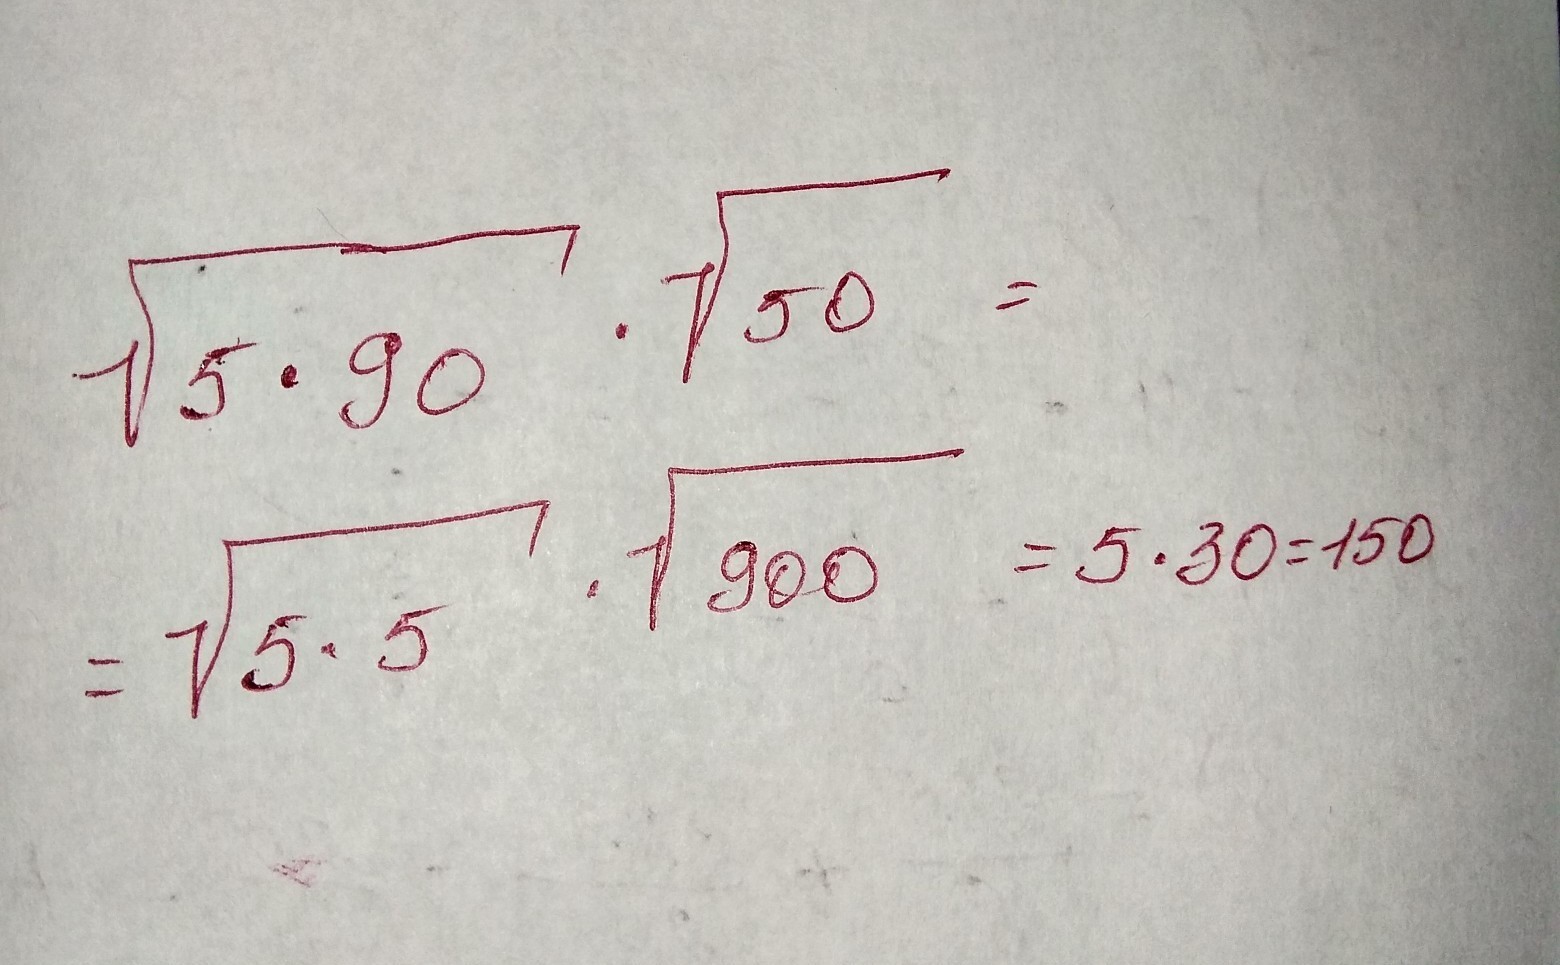 √5·90 · √50 =
= √5·5 · √900 = 5·30=150